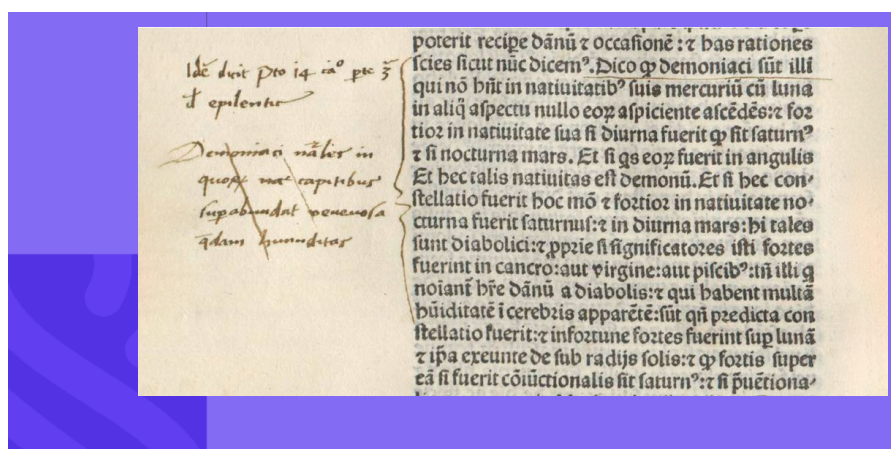 Idē dicit Pto i4 cāº pte 3̄
đ epilentic
Demoniaci nāl'er in
quoꝝ nāt capitibus
supabundat venenosa
q̄dam humiditas
poterit recipe dānū ⁊ occasionē : ⁊ has rationes
scies sicut nūc dicemꝰ. Dico ꝙ demoniaci sūt illi
qui nō hn̄t in natiuitatibꝰ suis mercuriū cū luna
in aliq̄ aspectu nullo eoꝝ aspiciente ascēdēs:⁊ for
tior in natiuitate sua si diurna fuerit ꝙ sit saturnꝰ
⁊ si nocturna mars. Et si q̄s eoꝝ fuerit in angulis
Et hec talis natiuitas est demonū. Et si hec con-
stellatio fuerit hoc mō ⁊ fortior in natiuitate no-
cturna fuerit saturnus:⁊ in diurna mars: hi tales
sunt diabolici:⁊ ꝓprie si significatores isti fortes
fuerint in cancro:aut virgine:aut piscibꝰ:tn̄ illi q̄
noiant̄ hr̄e dānū a diabolis:⁊ qui habent multā
hūiditatē ī cerebris apparētē:sūt qn̄ predicta con
stellatio fuerit:⁊ infortune fortes fuerint suꝑ lunā
⁊ ip̄a exeunte de sub radijs solis:⁊ ꝙ fortis super
eā si fuerit cōiūctionalis sit saturnꝰ:⁊ si p̄uētiona-